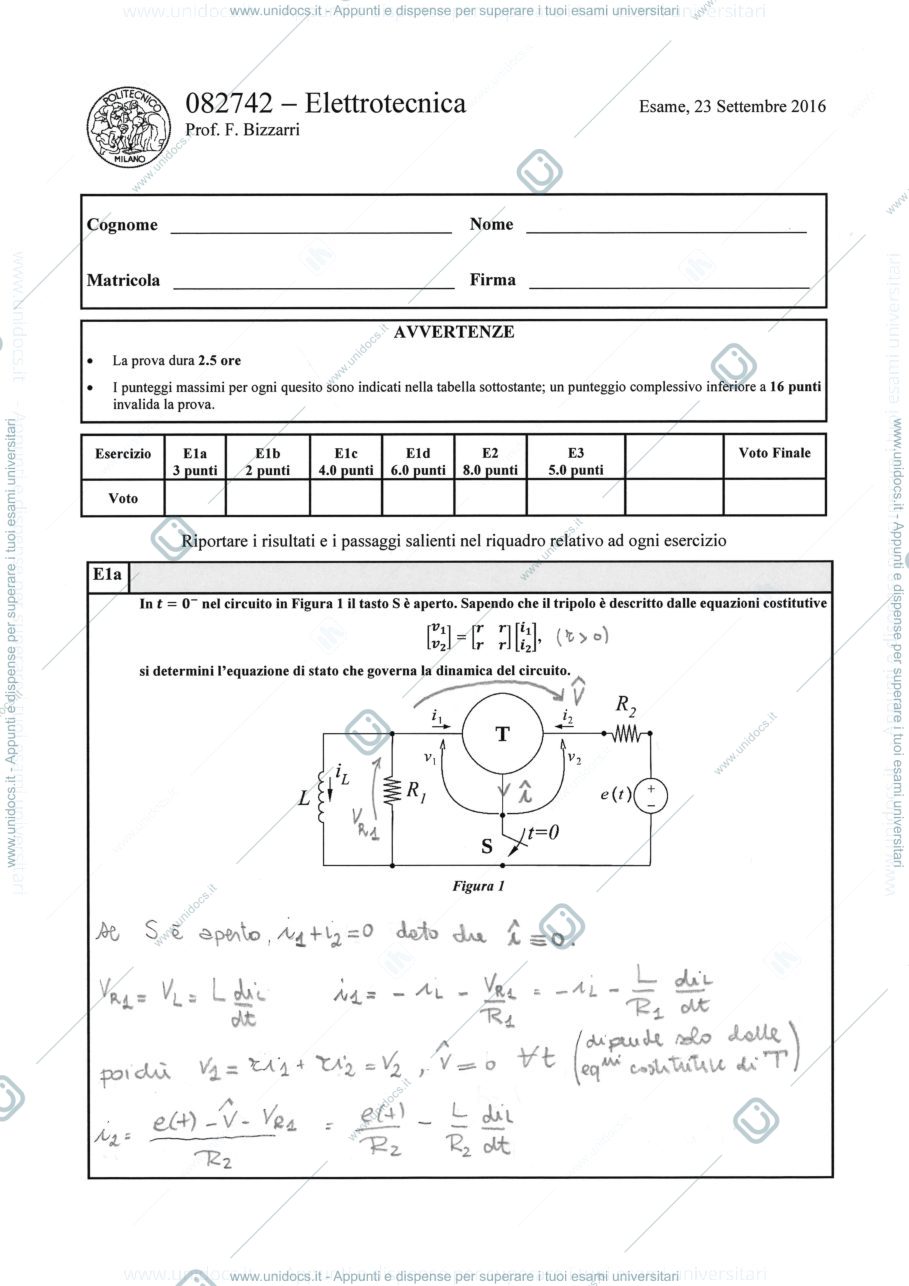 www.unidocs.it - Appunti e dispense per superare i tuoi esami universitari
POLITECNICO
MILANO
082742 – Elettrotecnica
Prof. F. Bizzarri
Esame, 23 Settembre 2016
Cognome Nome
Matricola Firma
AVVERTENZE
• La prova dura 2.5 ore
• I punteggi massimi per ogni quesito sono indicati nella tabella sottostante; un punteggio complessivo inferiore a 16 punti
invalida la prova.
Esercizio E1a E1b E1c E1d E2 E3 Voto Finale
3 punti 2 punti 4.0 punti 6.0 punti 8.0 punti 5.0 punti
Voto
Riportare i risultati e i passaggi salienti nel riquadro relativo ad ogni esercizio
E1a
In t = 0⁻ nel circuito in Figura 1 il tasto S è aperto. Sapendo che il tripolo è descritto dalle equazioni costitutive
[v₁ v₂] = [r r r r][i₁ i₂], (r > 0)
si determini l'equazione di stato che governa la dinamica del circuito.
v̂
R₂
i₁ T i₂
v₁ v₂
L i_L R₁ î e(t) + −
V_R1
S t=0
Figura 1
se S è aperto, i₁+i₂=0 dato che î ≡ 0.
V_R1 = V_L = L di_L/dt i₁ = − i_L − V_R1/R₁ = −i_L − L/R₁ di_L/dt
poiché V₁ = ri₁ + ri₂ = V₂, v̂ = 0 ∀t (dipende solo dalle
eq.ni costitutive di T)
i₂ = (e(t) − v̂ − V_R1)/R₂ = e(t)/R₂ − L/R₂ di_L/dt
www.unidocs.it - Appunti e dispense per superare i tuoi esami universitari